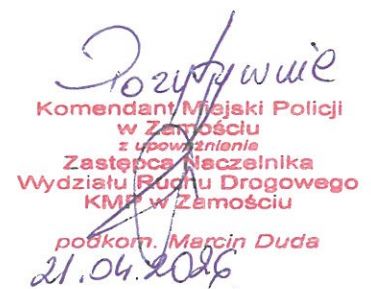 Pozytywnie
Komendant Miejski Policji
w Zamościu
z upoważnienia
Zastępca Naczelnika
Wydziału Ruchu Drogowego
KMP w Zamościu
podkom. Marcin Duda
21.04.2026